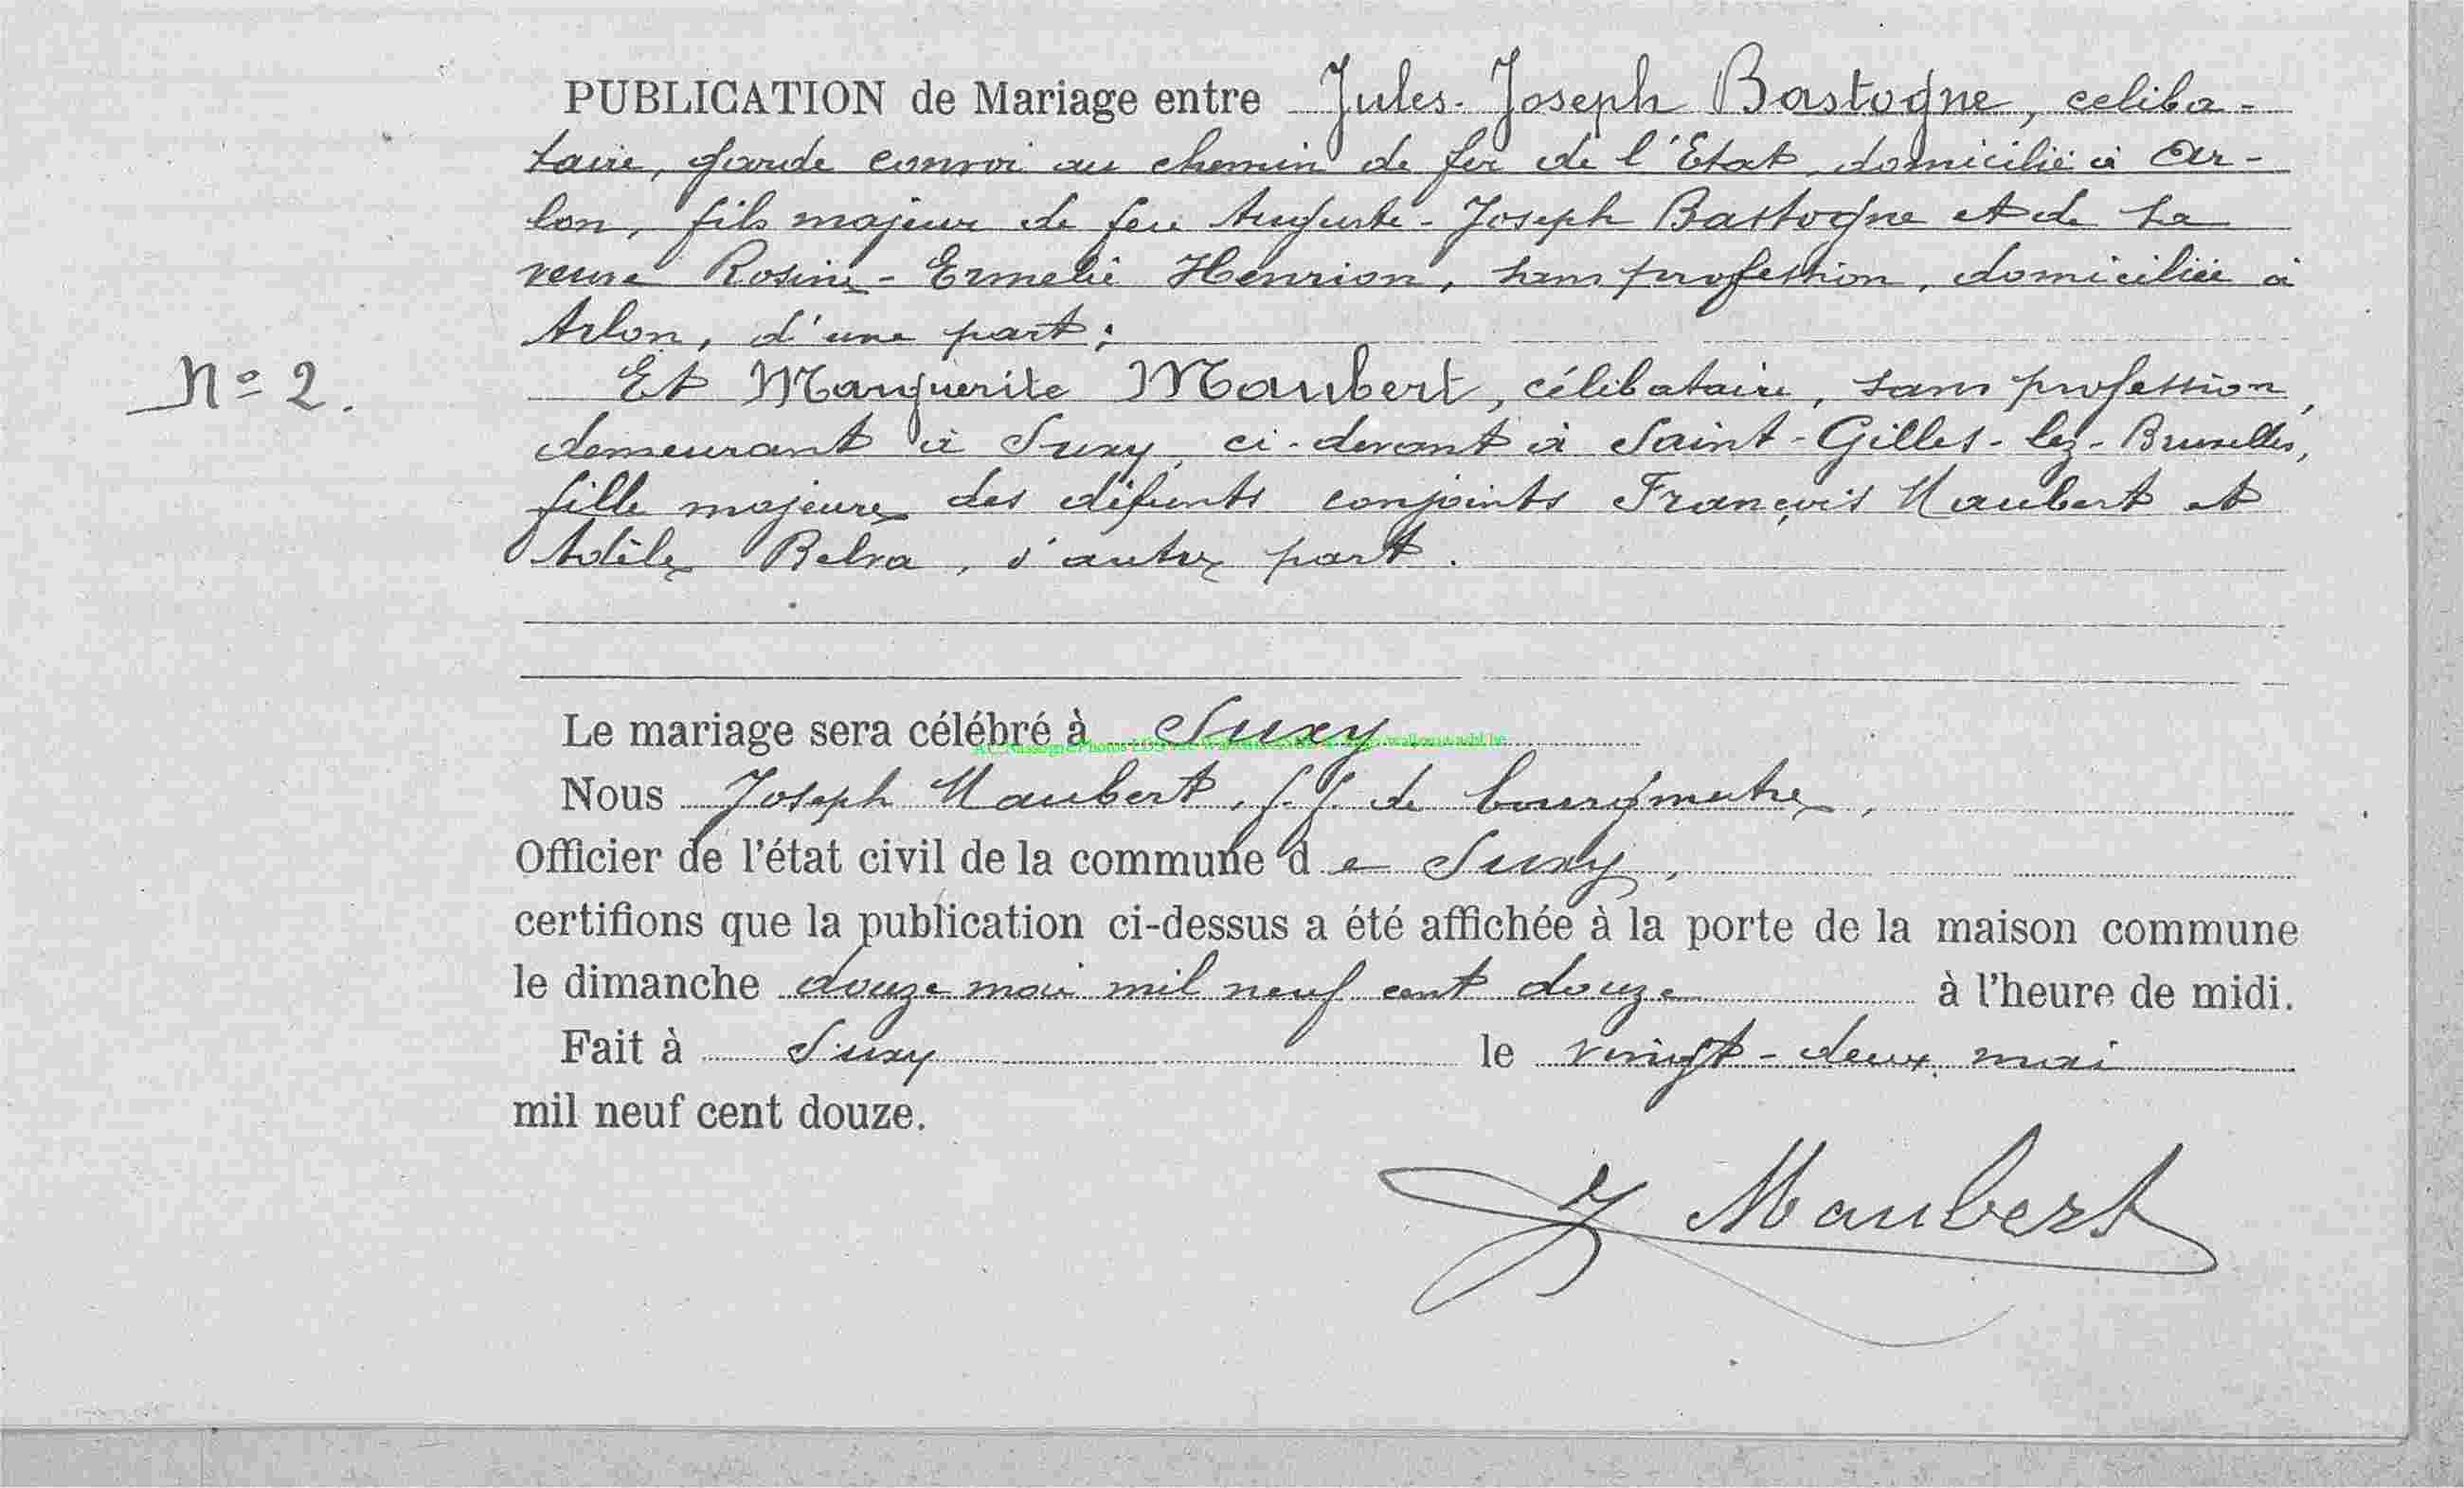 PUBLICATION de Mariage entre Jules-Joseph Bastogne, céliba-
taire, garde convoi au chemin de fer de l'Etat, domicilié à Ar-
lon, fils majeur de feu Auguste-Joseph Bastogne et de sa
veuve Rosine-Ermelie Henrion, sans profession, domiciliée à
Arlon, d'une part;
N° 2.
Et Marguerite Maubert, célibataire, sans profession,
demeurant à Suxy, ci-devant à Saint-Gilles-lez-Bruxelles,
fille majeure des défunts conjoints François Maubert et
Adèle Belva, d'autre part.
Le mariage sera célébré à Suxy
Nous Joseph Maubert, f.f. de bourgmetre,
Officier de l'état civil de la commune d e Suxy,
certifions que la publication ci-dessus a été affichée à la porte de la maison commune
le dimanche douze mai mil neuf cent douze à l'heure de midi.
Fait à Suxy le vingt-deux mai
mil neuf cent douze.
J Maubert